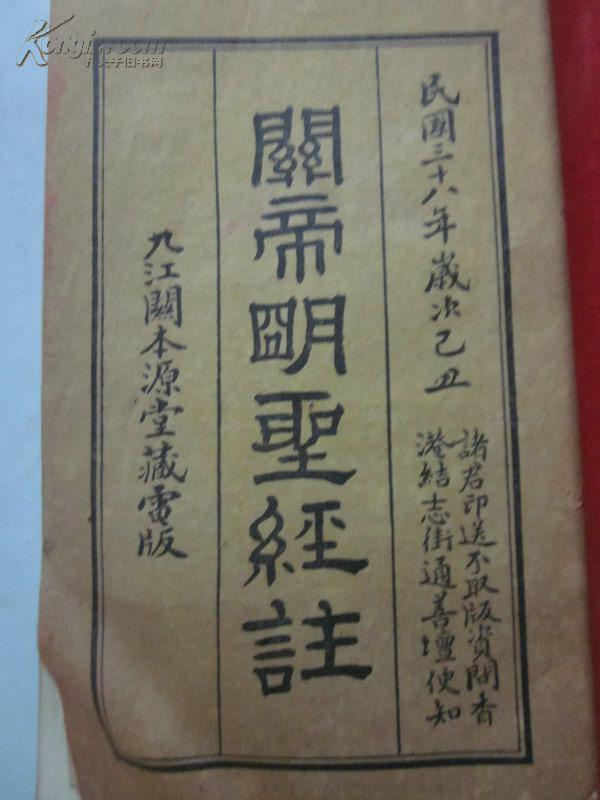 民國三十八年歲次己丑
諸君印送不取版资問香
港結志街通善壇便知
關帝明聖經註
九江關本源堂藏電版
Kongfz.com
孔夫子旧书网